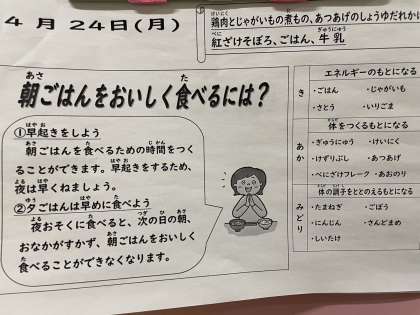 4月24日(月)
鶏肉とじゃがいもの煮もの、あつあげのしょうゆだれか
紅ざけそぼろ、ごはん、牛乳
朝ごはんをおいしく食べるには?
①早起きをしよう
朝ごはんを食べるための時間をつく
ることができます。早起きをするため、
夜は早くねましょう。
②夕ごはんは早めに食べよう
夜おそくに食べると、次の日の朝、
おなかがすかず、朝ごはんをおいしく
食べることができなくなります。
エネルギーのもとになる
き
・ごはん ・じゃがいも
・さとう ・いりごま
体をつくるもとになる
あか
・ぎゅうにゅう ・けいにく
・けずりぶし ・あつあげ
・べにざけフレーク ・あおのり
体の調子をととのえるもとになる
みどり
・たまねぎ ・ごぼう
・にんじん ・さんどまめ
・しいたけ